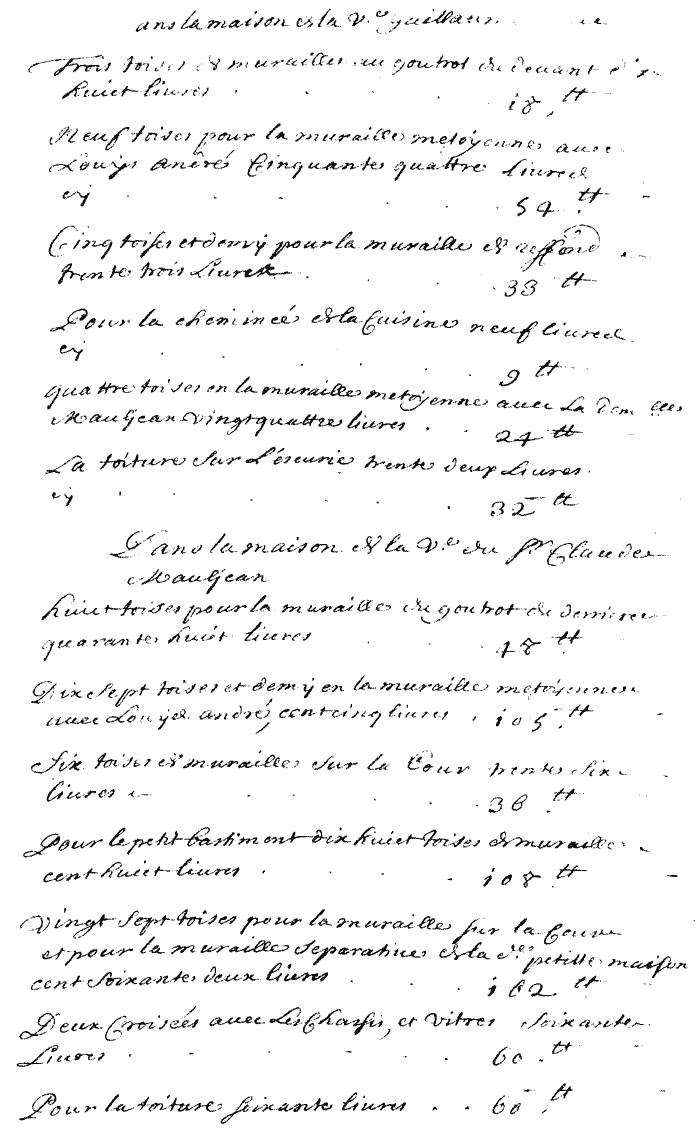 ans la maison de la v.e guillau
Trois toises de murailles au goutrot du deuant dix
huict liures 18 tt
Neuf toises pour la muraille metoyenne auec
Louys André Cinquante quattre liures
cy 54 tt
Cinq toises et demy pour la muraille de reffond
trente trois Liures 33 tt
Pour la cheminée de la Cuisine neuf liures
cy 9 tt
quattre toises en la muraille metoyenne auec La dem.elles
Mauljean vingt quattre liures 24 tt
La toiture sur L'escurie trente deux Liures
cy 32 tt
Dans la maison de la V.e du Sr Claude
Mauljean
huict toises pour la muraille du goutrot du derriere
quarante huict liures 48 tt
Dix Sept toises et demy en la muraille metoyenne
auec Louys andré, cent cinq liures 105 tt
Six toises de murailles sur la Cour trente six
liures 36 tt
Pour le petit bastiment dix huict toises de muraille
cent huict liures 108 tt
Vingt Sept toises pour la muraille sur la Cour
et pour la muraille separatiue de la d.e petitte maison
cent soixante deux liures 162 tt
Deux Croisées auec Les Chassis, et Vitres soixante
Liures 60 tt
Pour la toiture soixante liures 60 tt